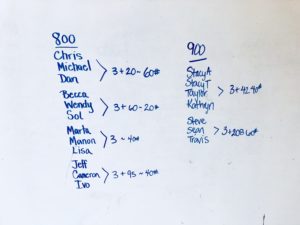 800
Chris
Michael
Dan
3+20~60#
Becca
Wendy
Sol
3+60-20#
Marta
Manon
Lisa
3~40#
Jeff
Cameron
Ivo
3+95~40#
900
Stacy A
Stacy T
Taylor
Kathryn
Steve
Sean
Travis